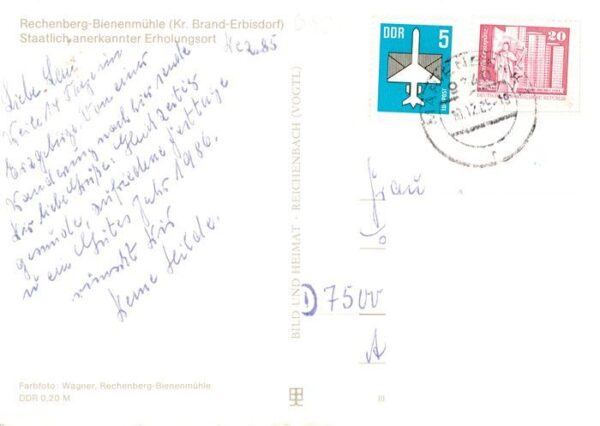 Rechenberg-Bienenmühle (Kr. Brand-Erbisdorf)
Staatlich anerkannter Erholungsort
Dez. 85
Liebe
Tage im
Erzgebirge. Von einer
Wanderung nach hier sende
Dir liebe Grüße. Gleichzeitig
gesunde, zufriedene Festtage
u ein Gutes Jahr 1986.
wünscht Dir
Deine Hilde.
BILD UND HEIMAT · REICHENBACH (VOGTL)
DDR 5
LUFTPOST
20
12.85
Frau
7500
Farbfoto: Wagner, Rechenberg-Bienenmühle
DDR 0,20 M
III